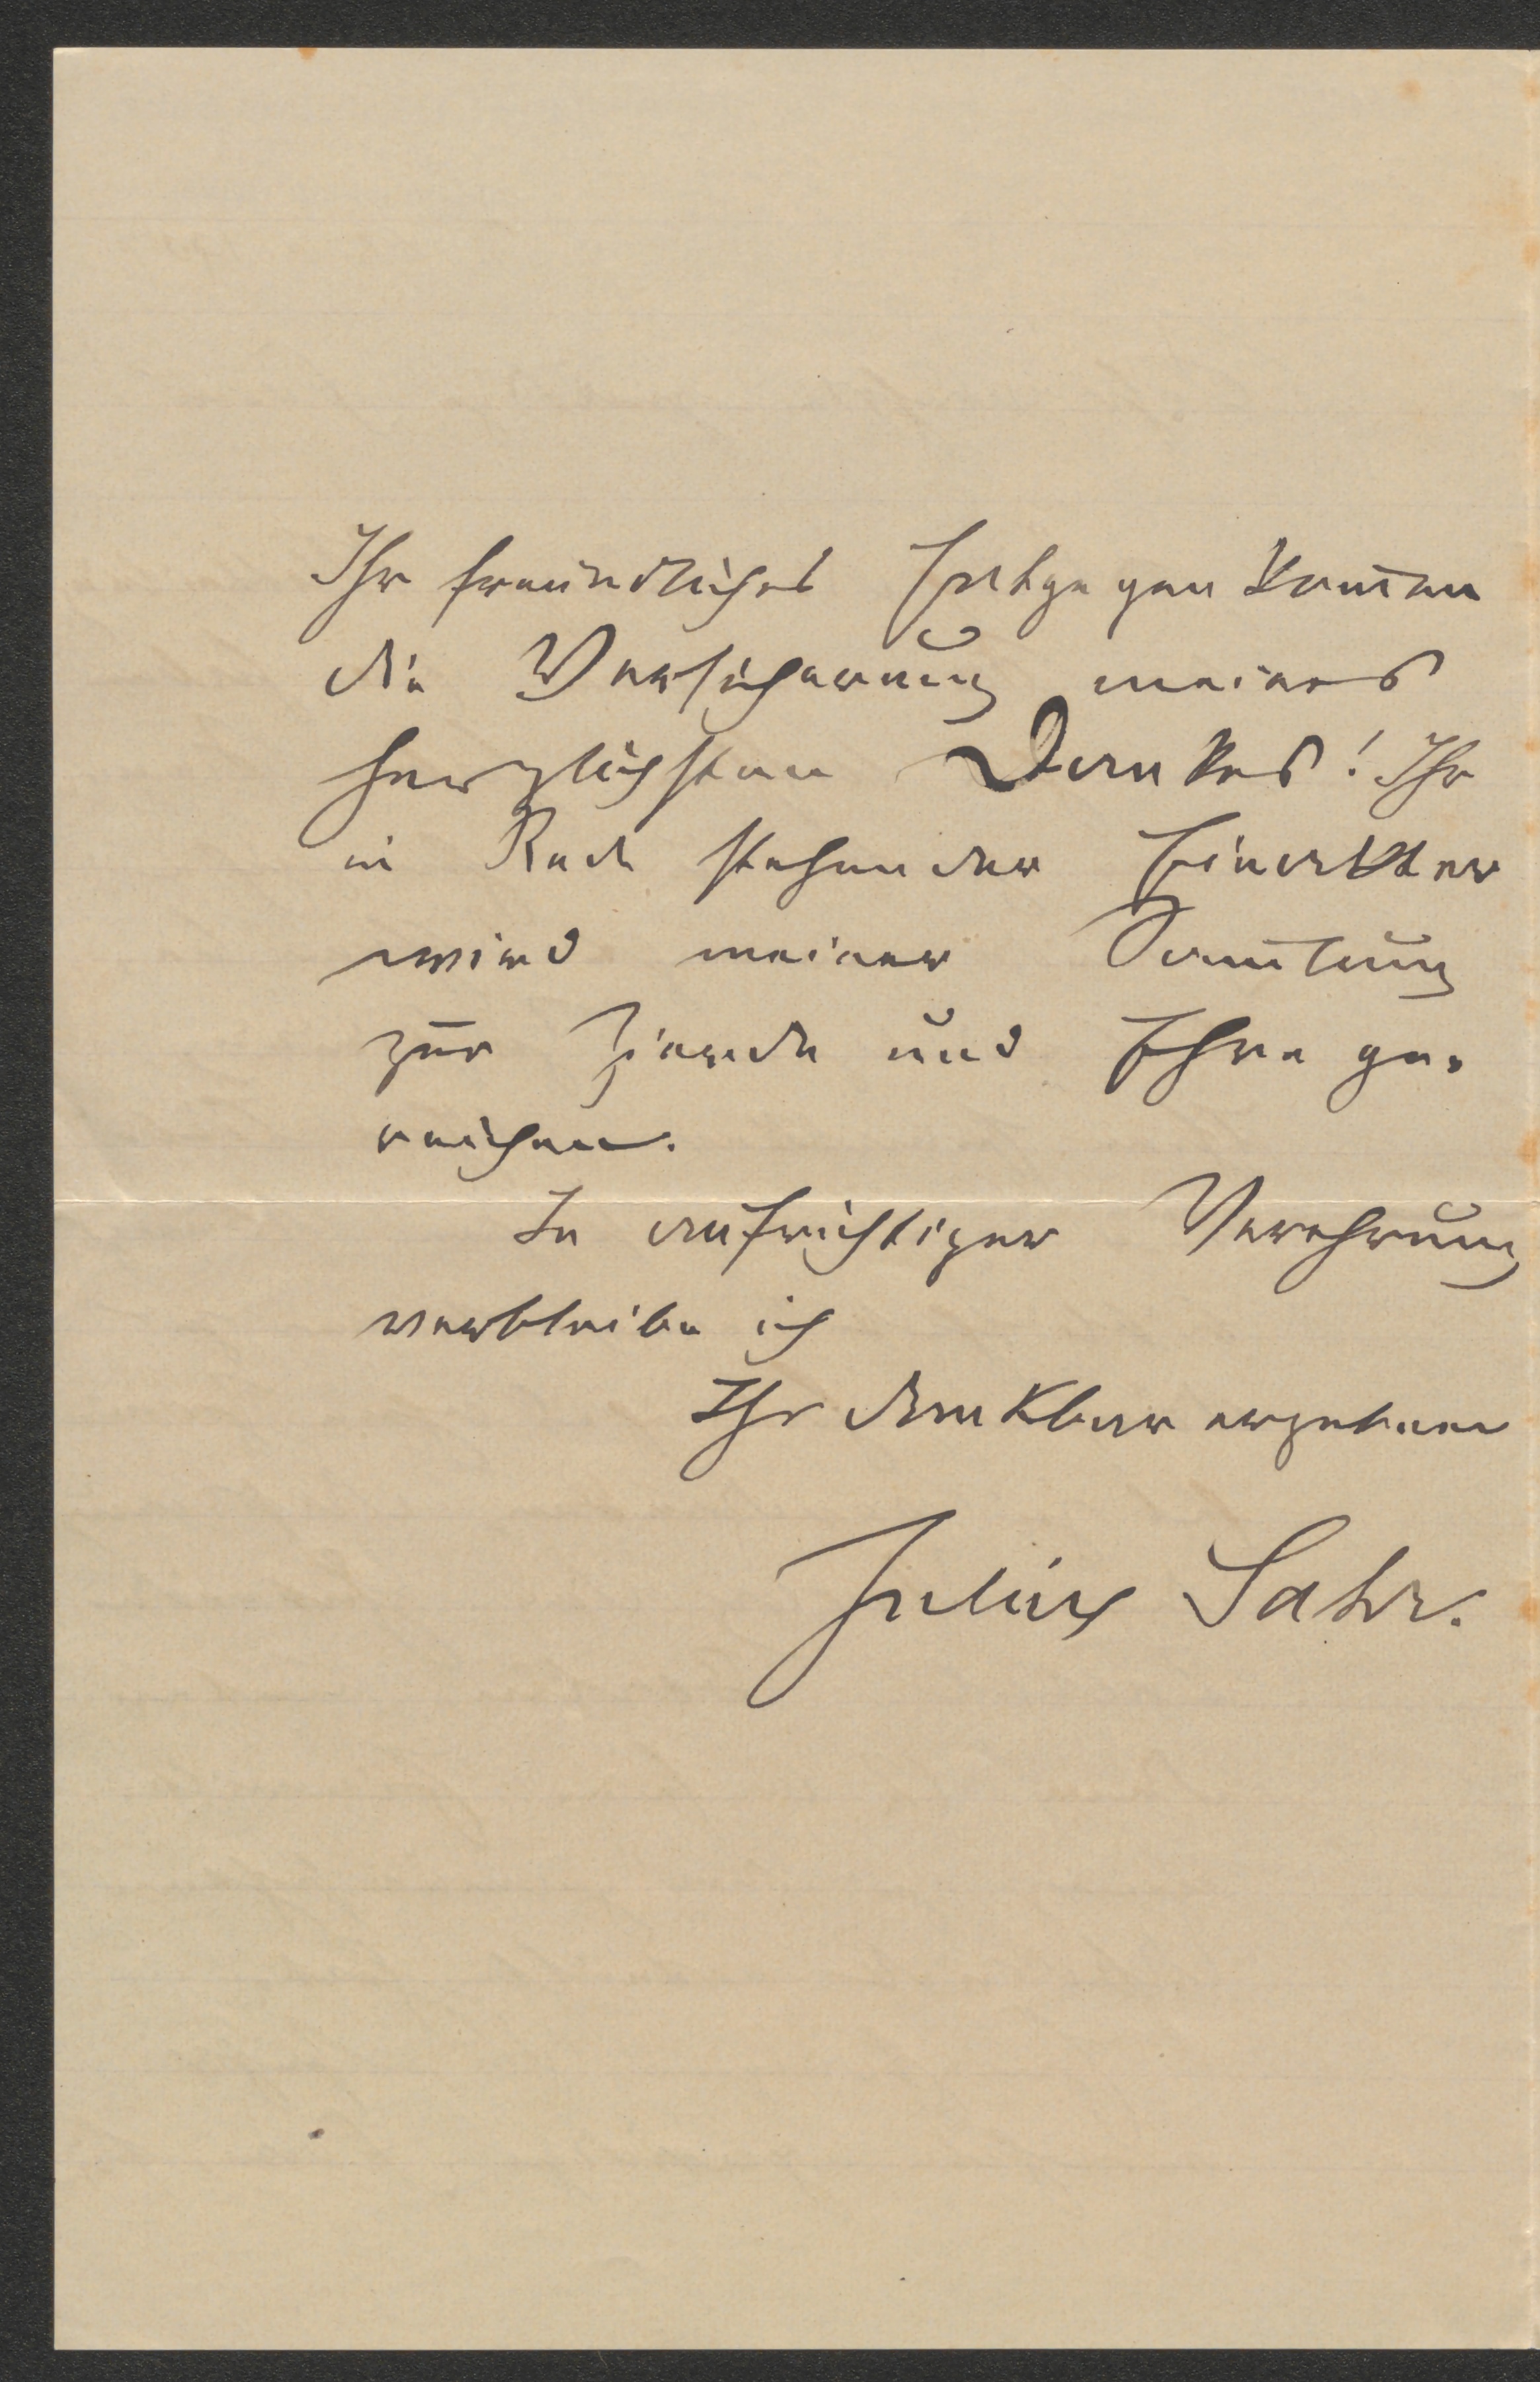 Ihr freundliches Entgegenkom̅en
die Versicherung meines
herzlichsten Dankes! Ihr
in Rede stehender Einakter
wird meiner Sam̅lung
zur Zierde und Ehre ge-
reichen.
In aufrichtiger Verehrung
verbleibe ich
Ihr dankbar ergebener
Julius Sahr.